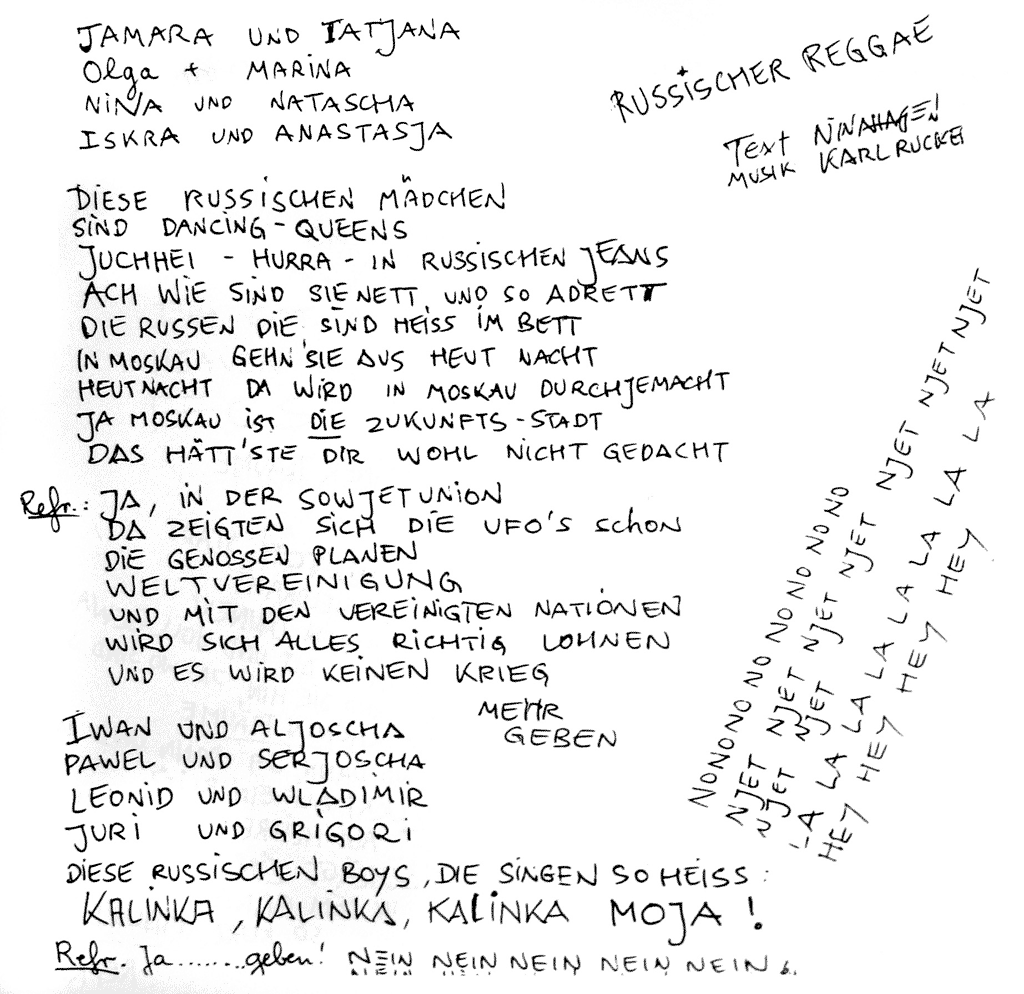 RUSSISCHER REGGAE
Text NINA HAGEN
MUSIK KARL RUCKER
TAMARA UND TATJANA
Olga + MARINA
NINA UND NATASCHA
ISKRA UND ANASTASJA
DIESE RUSSISCHEN MÄDCHEN
SIND DANCING-QUEENS
JUCHHEI - HURRA - IN RUSSISCHEN JEANS
ACH WIE SIND SIE NETT UND SO ADRETT
DIE RUSSEN DIE SIND HEISS IM BETT
IN MOSKAU GEHN SIE AUS HEUT NACHT
HEUT NACHT DA WIRD IN MOSKAU DURCHJEMACHT
JA MOSKAU IST DIE ZUKUNFTS-STADT
DAS HÄTT'STE DIR WOHL NICHT GEDACHT
Refr.: JA, IN DER SOWJETUNION
DA ZEIGTEN SICH DIE UFO'S SCHON
DIE GENOSSEN PLANEN
WELTVEREINIGUNG
UND MIT DEN VEREINIGTEN NATIONEN
WIRD SICH ALLES RICHTIG LOHNEN
UND ES WIRD KEINEN KRIEG
MEHR
GEBEN
IWAN UND ALJOSCHA
PAWEL UND SERJOSCHA
LEONID UND WLADIMIR
JURI UND GRIGORI
DIESE RUSSISCHEN BOYS, DIE SINGEN SO HEISS:
KALINKA, KALINKA, KALINKA MOJA!
Refr. Ja........geben! NEIN NEIN NEIN NEIN NEIN
NO NO NO NO NO NO NO NO NO
NJET NJET NJET NJET NJET NJET NJET NJET
NJET NJET NJET NJET
LA LA LA LA LA LA LA LA LA LA
HEY HEY HEY HEY HEY